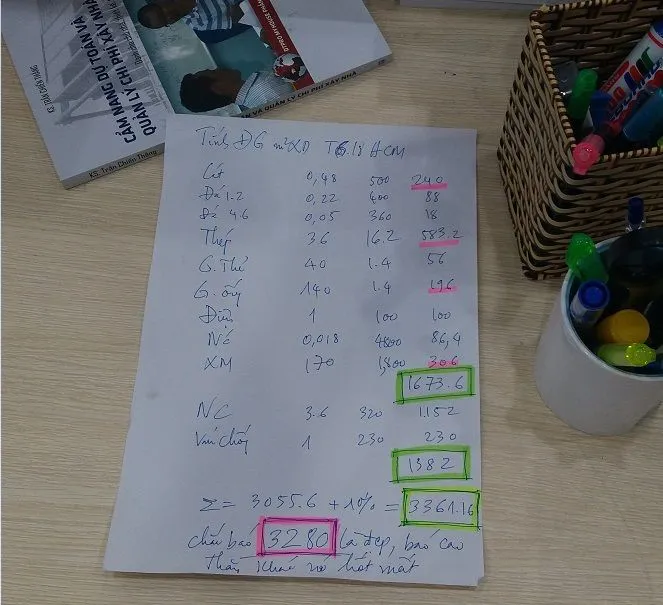 KS. TRẦN CHIẾN THẮNG
CẨM NANG DỰ TOÁN VÀ
QUẢN LÝ CHI PHÍ XÂY NHÀ
DTPRO MY HOUSE
VÀ QUẢN LÝ CHI PHÍ XÂY NHÀ
KS. Trần Chiến Thắng
Tính ĐG m² XD T6.18 HCM
Cát 0,48 500 240
Đá 1.2 0,22 400 88
Đá 4.6 0,05 360 18
Thép 36 16.2 583.2
G. Thẻ 40 1.4 56
G. ống 140 1.4 196
Đinh 1 100 100
0,018 4800 86,4
XM 170 1,800 306
1673.6
NC 3.6 320 1.152
1 230 230
1382
Σ = 3055.6 + 10% = 3361.16
bao 3280 là đẹp, báo cao